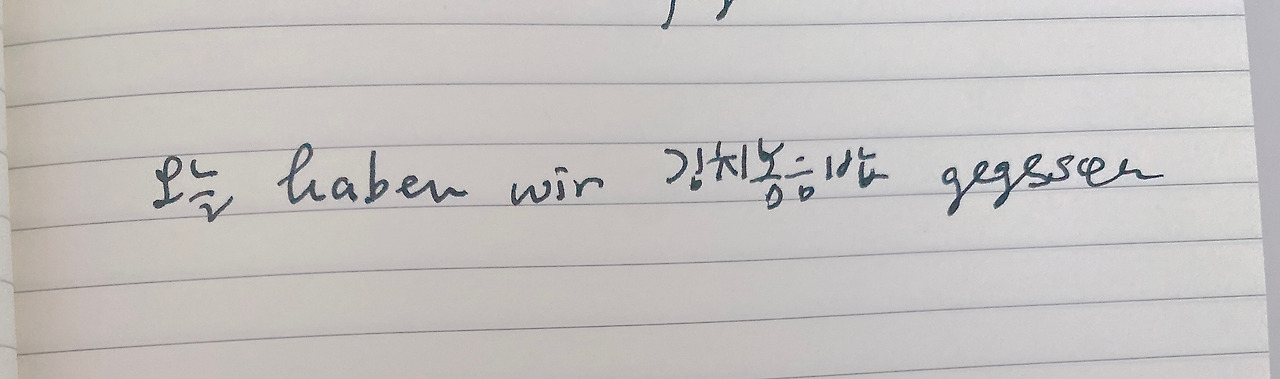 오늘 haben wir 김치볶음밥 gegessen